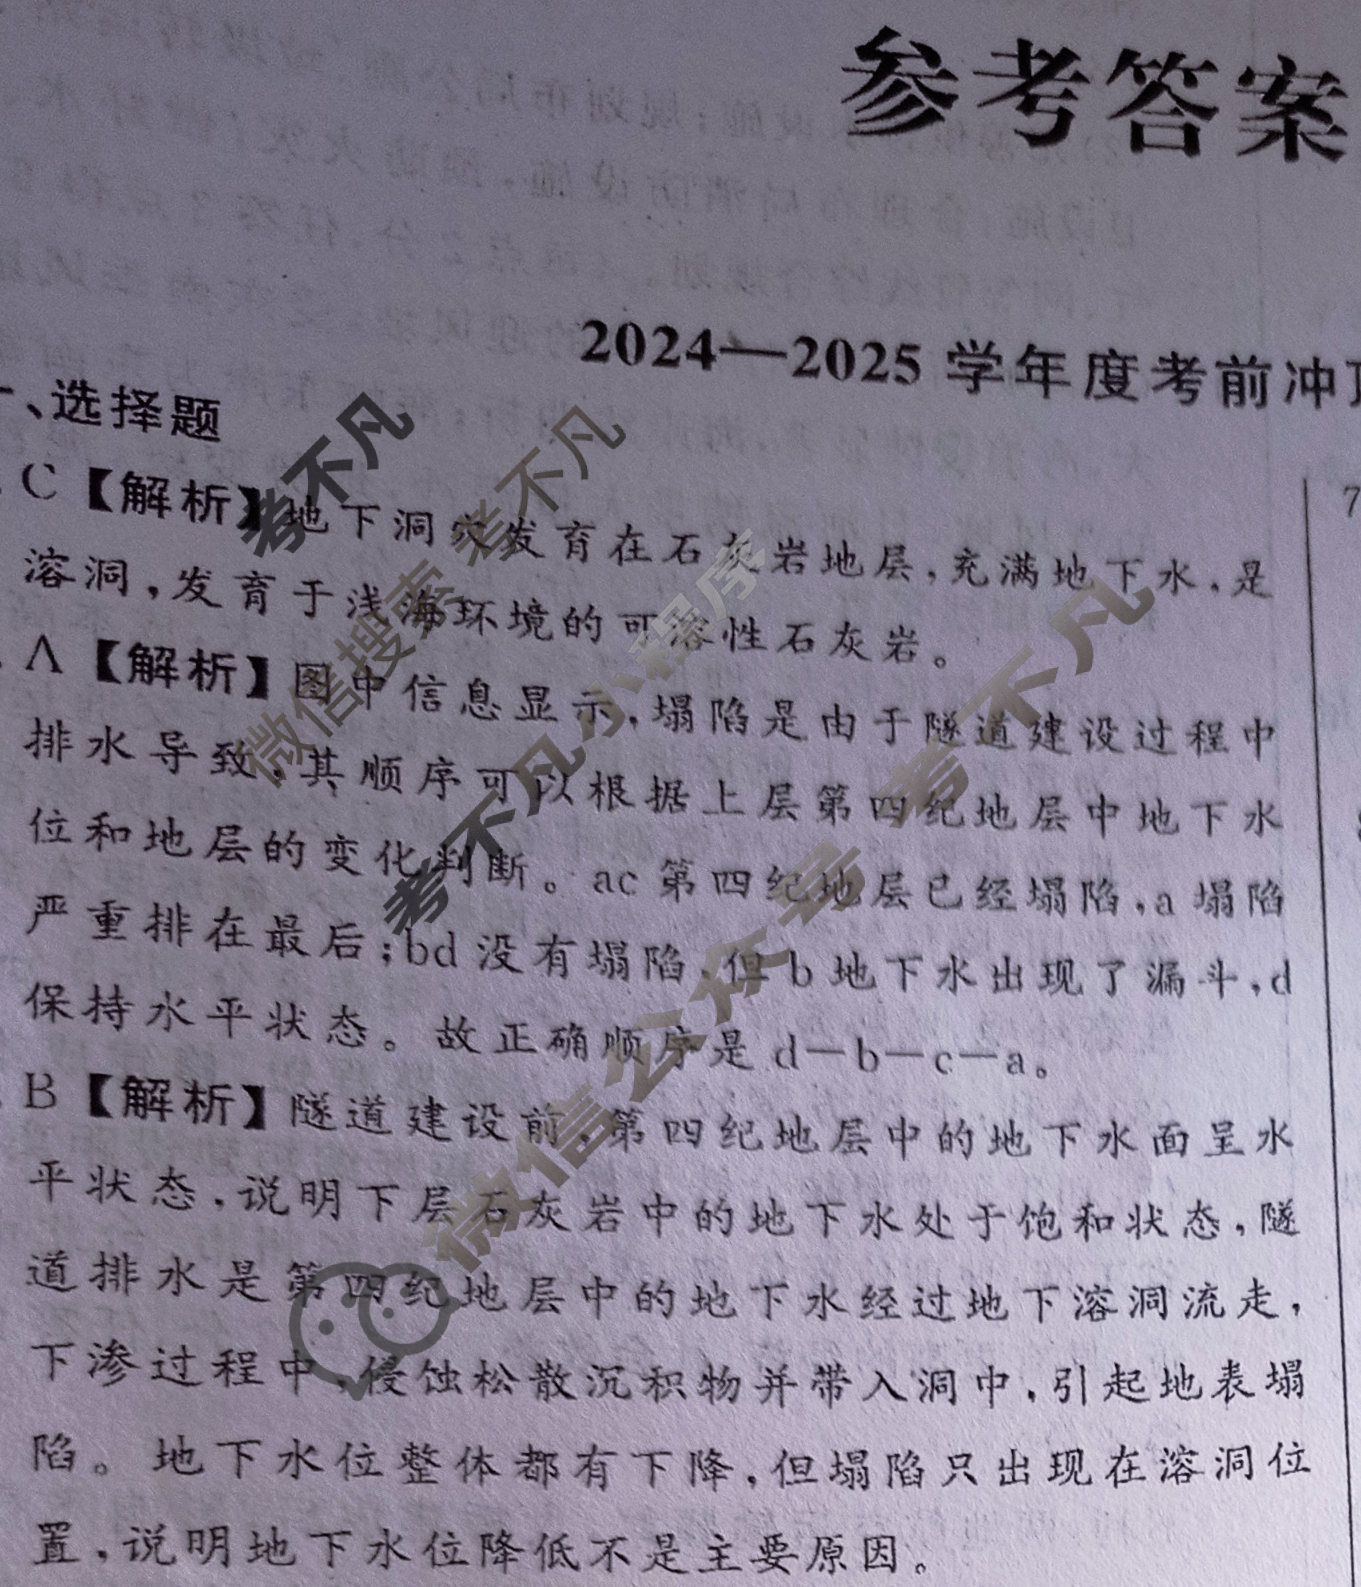 参考答案
2024—2025 学年度考前冲
一、选择题
C【解析】地下洞穴发育在石灰岩地层,充满地下水,是
溶洞,发育于浅海环境的可溶性石灰岩。
A【解析】图中信息显示,塌陷是由于隧道建设过程中
排水导致,其顺序可以根据上层第四纪地层中地下水
位和地层的变化判断。ac 第四纪地层已经塌陷,a 塌陷
严重排在最后;bd 没有塌陷,但 b 地下水出现了漏斗,d
保持水平状态。故正确顺序是 d—b—c—a。
B【解析】隧道建设前,第四纪地层中的地下水面呈水
平状态,说明下层石灰岩中的地下水处于饱和状态,隧
道排水是第四纪地层中的地下水经过地下溶洞流走,
下渗过程中,侵蚀松散沉积物并带入洞中,引起地表塌
陷。地下水位整体都有下降,但塌陷只出现在溶洞位
置,说明地下水位降低不是主要原因。
7
考不凡
微信搜索 考不凡
考不凡小程序
考不凡
微信公众号